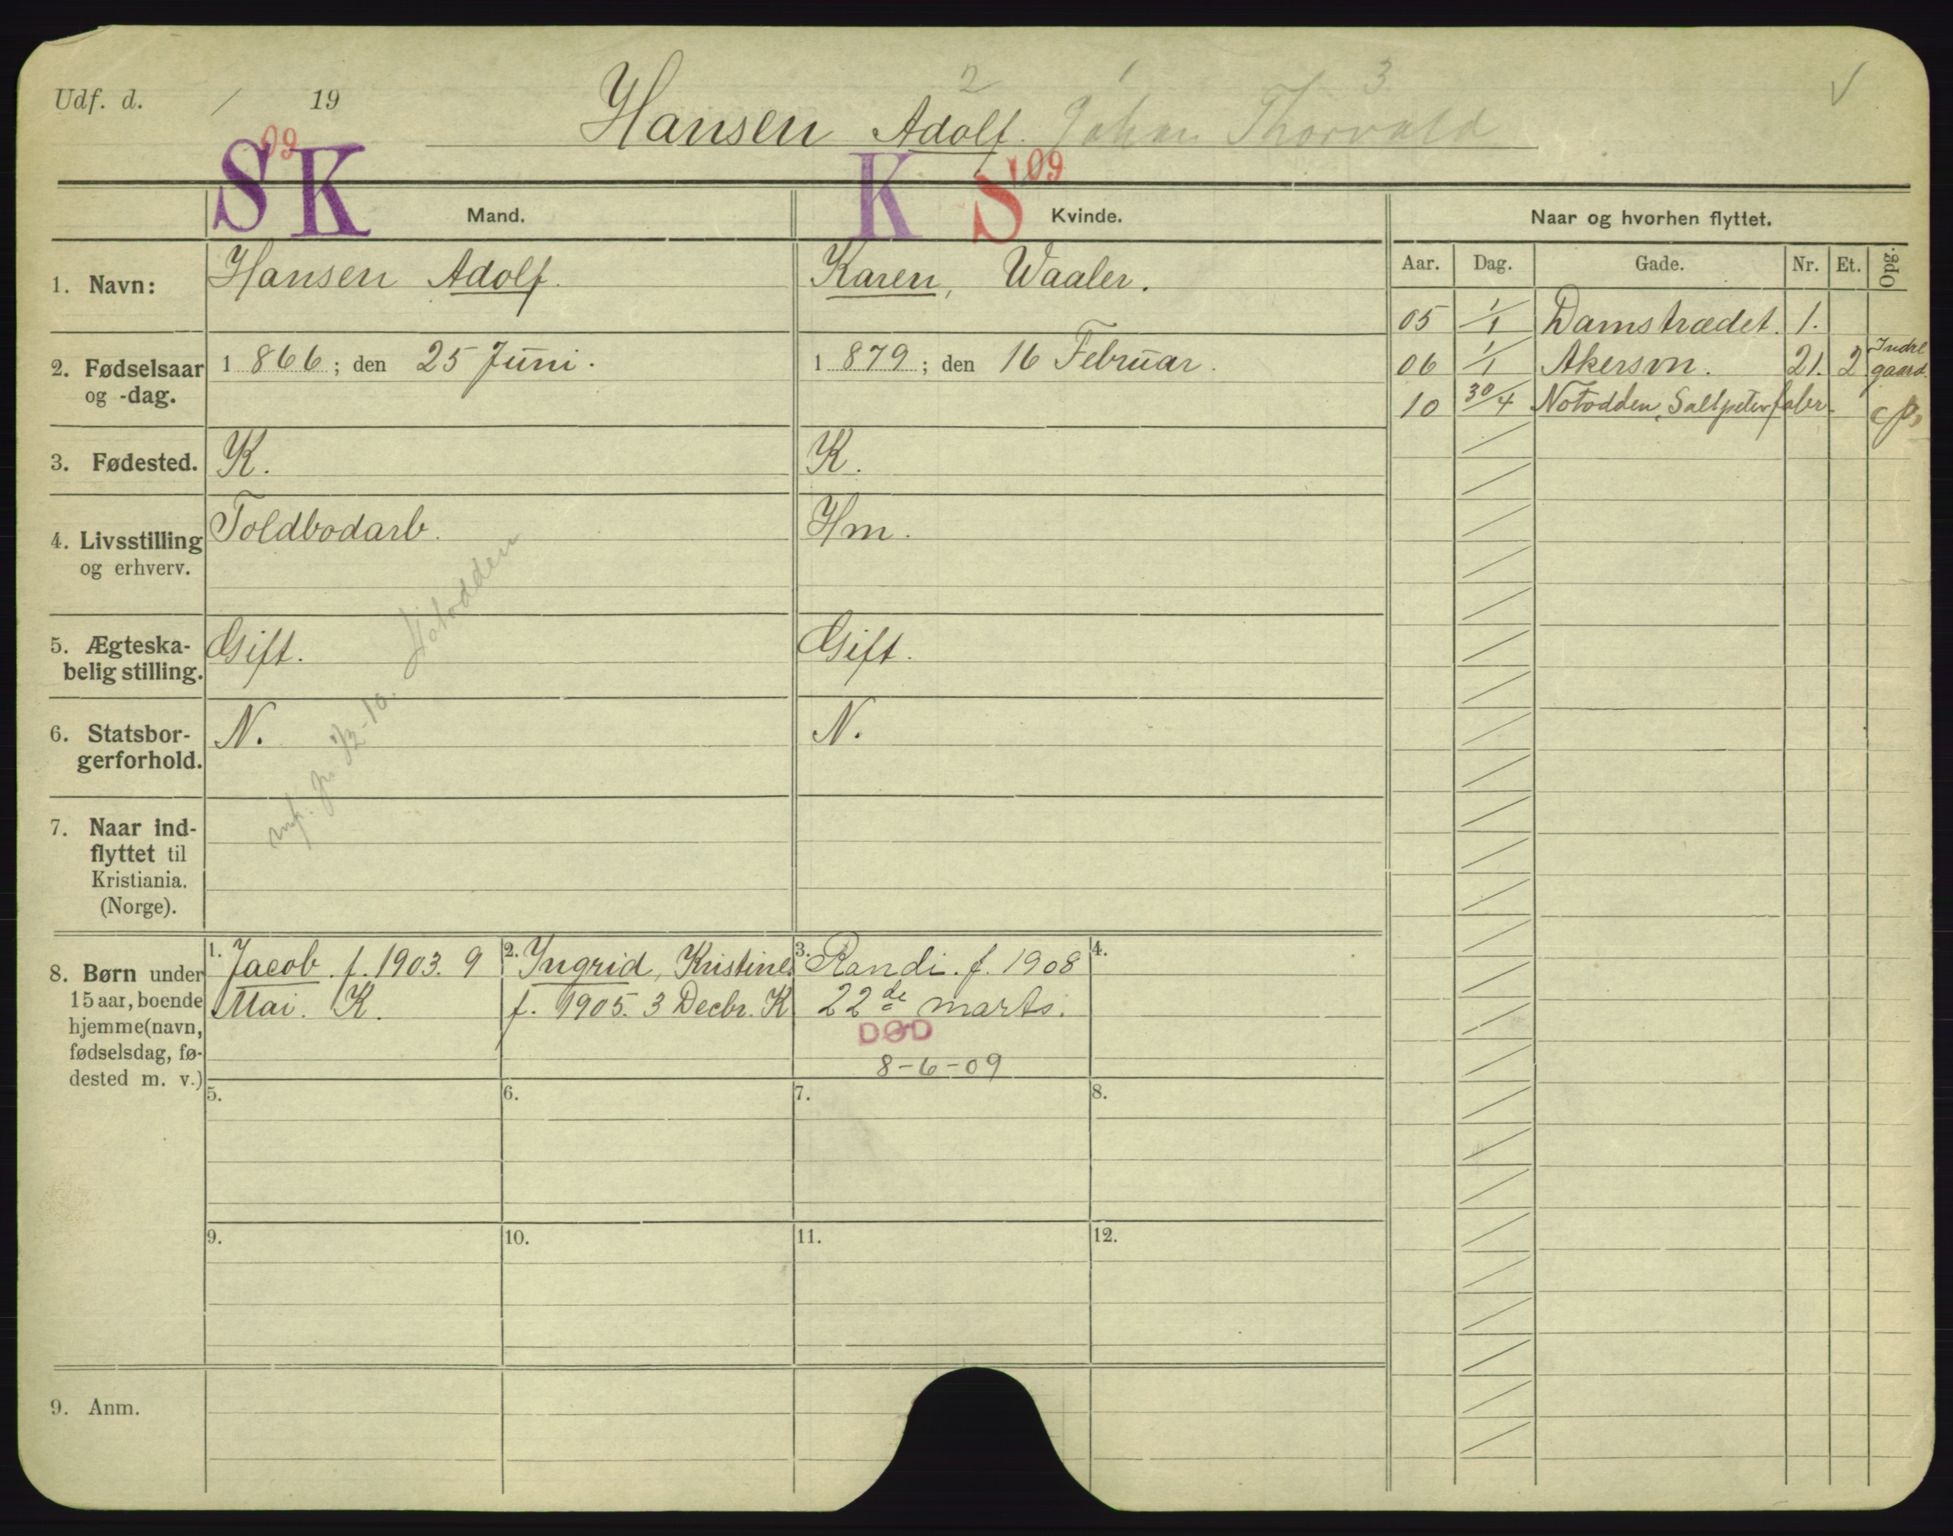 Udf. d. / 19
2 1 3 √
Hansen Adolf. Johan Thorvald
S 09 K K S 09
Mand. Kvinde. Naar og hvorhen flyttet.
Aar. Dag. Gade. Nr. Et. Opg.
1. Navn: Hansen Adolf. Karen, Waaler.
05 1/1 Damstrædet. 1.
2. Fødselsaar og -dag. 1 866; den 25 Juni. 1 879; den 16 Februar.
06 1/1 Akersvn. 21. 2 Indre gaard.
10 30/4 Notodden, Saltpeterfabr.
3. Fødested. K. K.
4. Livsstilling og erhverv. Toldbodarb. Hm.
5. Ægteskabelig stilling. Gift. Gift.
6. Statsborgerforhold. N. N.
Notodden
7. Naar indflyttet til Kristiania. (Norge).
8. Børn under
15 aar, boende
hjemme (navn,
fødselsdag, fø-
dested m. v.)
1. Jacob. f. 1903. 9
Mai. K.
2. Ingrid, Kristine
f. 1905. 3 Decbr. K
3. Randi. f. 1908
22de marts.
DØD
8-6-09
4.
5. 6. 7. 8.
9. 10. 11. 12.
9. Anm.